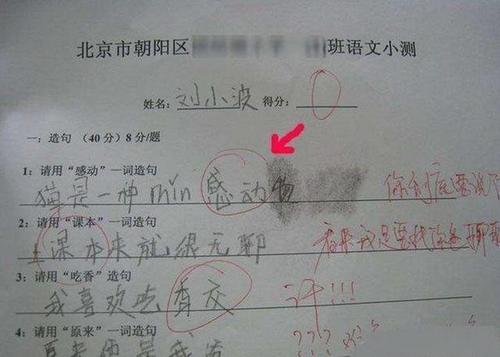 北京市朝阳区 班语文小测
姓名:刘小波 得分: 0
一:造句 (40分) 8分/题
1:请用“感动”一词造句
猫是一种min感动物
你到底要说
2:请用“课本”造句
上课本来就很无聊
看来我是要找你爸聊聊
3:请用“吃香”造句
我喜欢吃香交
汗!!!
4:请用“原来”一词造句